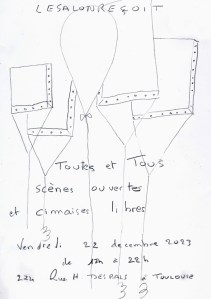 LE SALON REÇOIT
Toutes et Tous
scènes ouvertes
et cimaises libres
Vendredi 22 décembre 2023
de à 22h
Rue à TOULOUSE